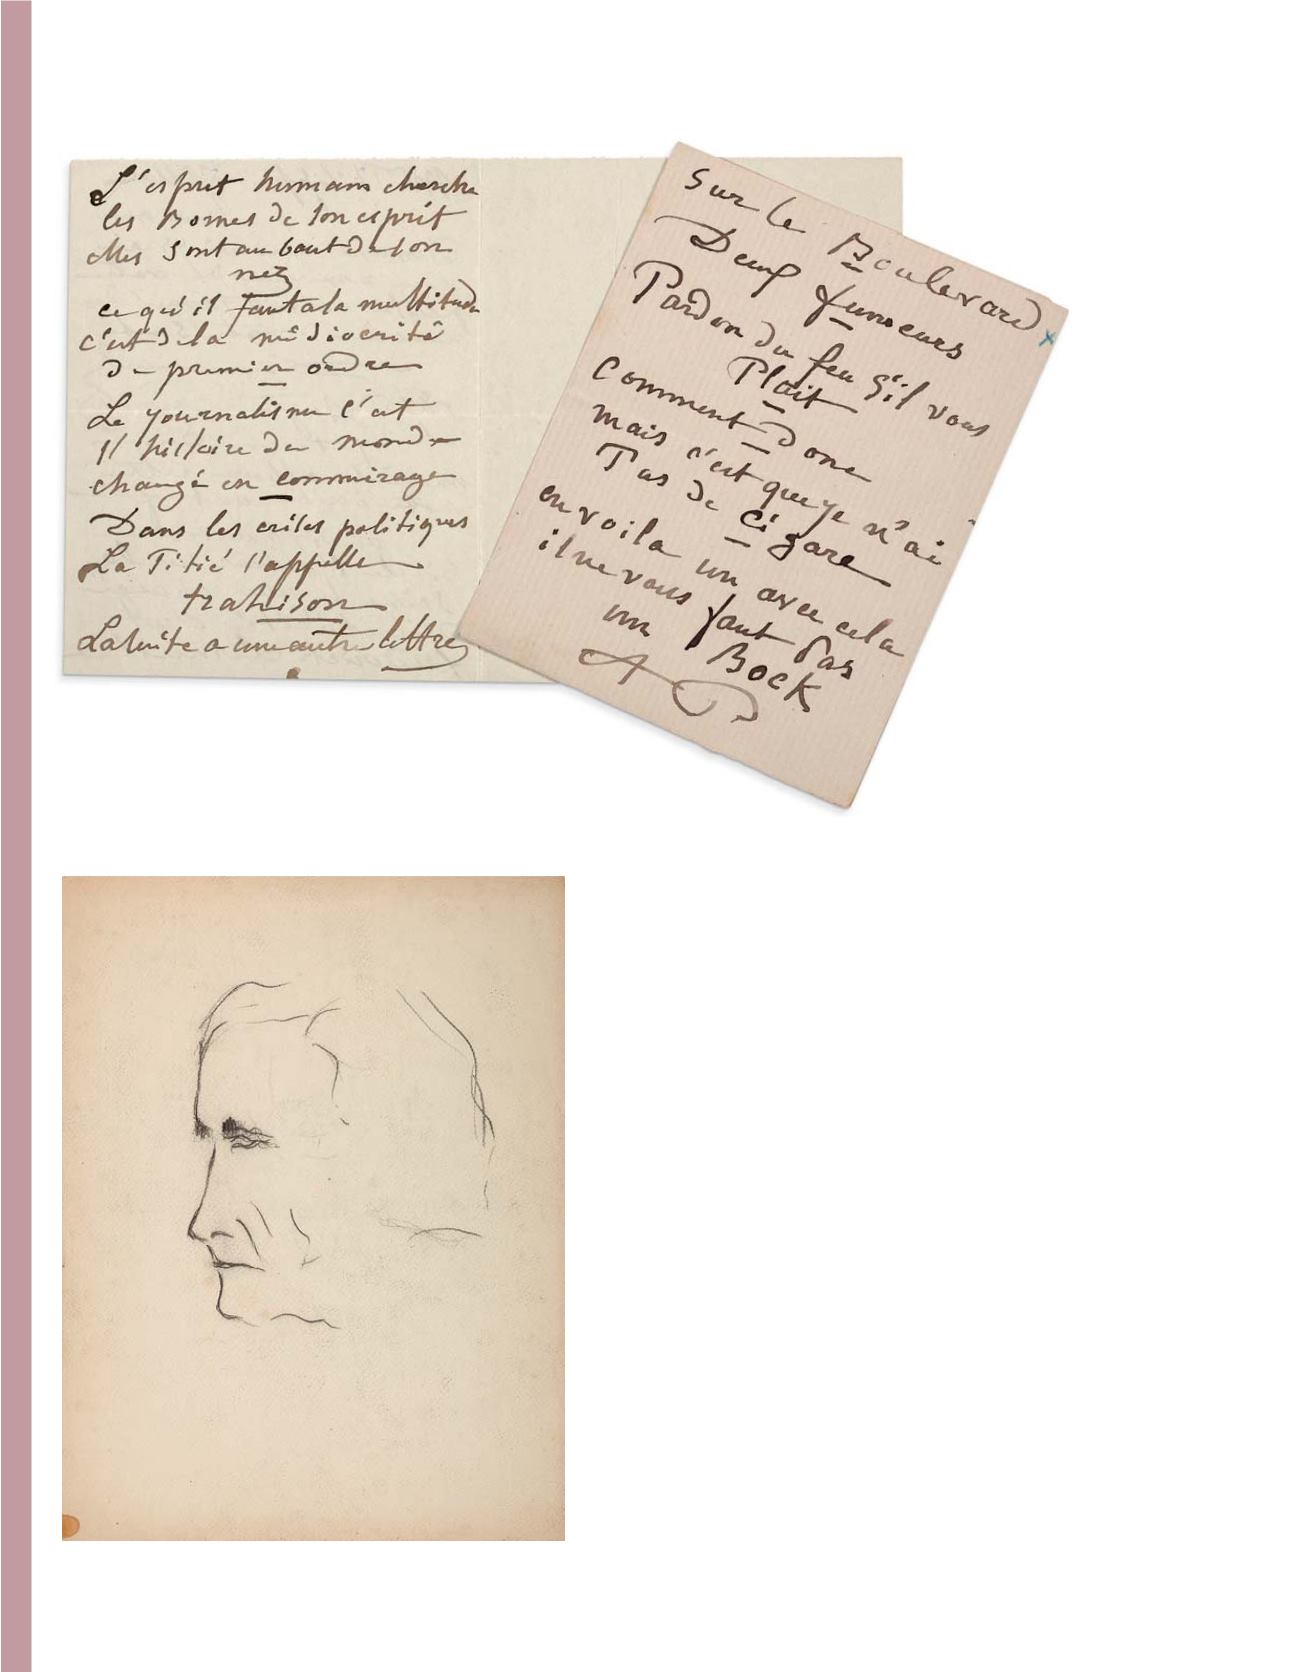 L'esprit humain cherche
les Bornes de son esprit
elles sont au bout de son
nez
ce qu'il faut a la multitude
c'est de la médiocrité
de premier ordre
Le journalisme c'est
l'histoire du monde
changé en commirage
Dans les crises politiques
La Pitié s'appelle
trahison
La suite a une autre lettre
Sur le Boulevard
Deux fumeurs
Pardon du feu s'il vous
Plait
Comment Donc
mais c'est que je n'ai
Pas de cigare
en voila un avec cela
il ne vous faut Pas
un Bock